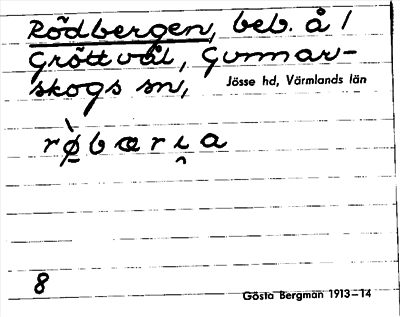 Rödbergen, beb. å /
Gröttvål, Gunnar-
skogs sn, Jösse hd, Värmlands län
rø̀bœri̯a
8
Gösta Bergman 1913–14